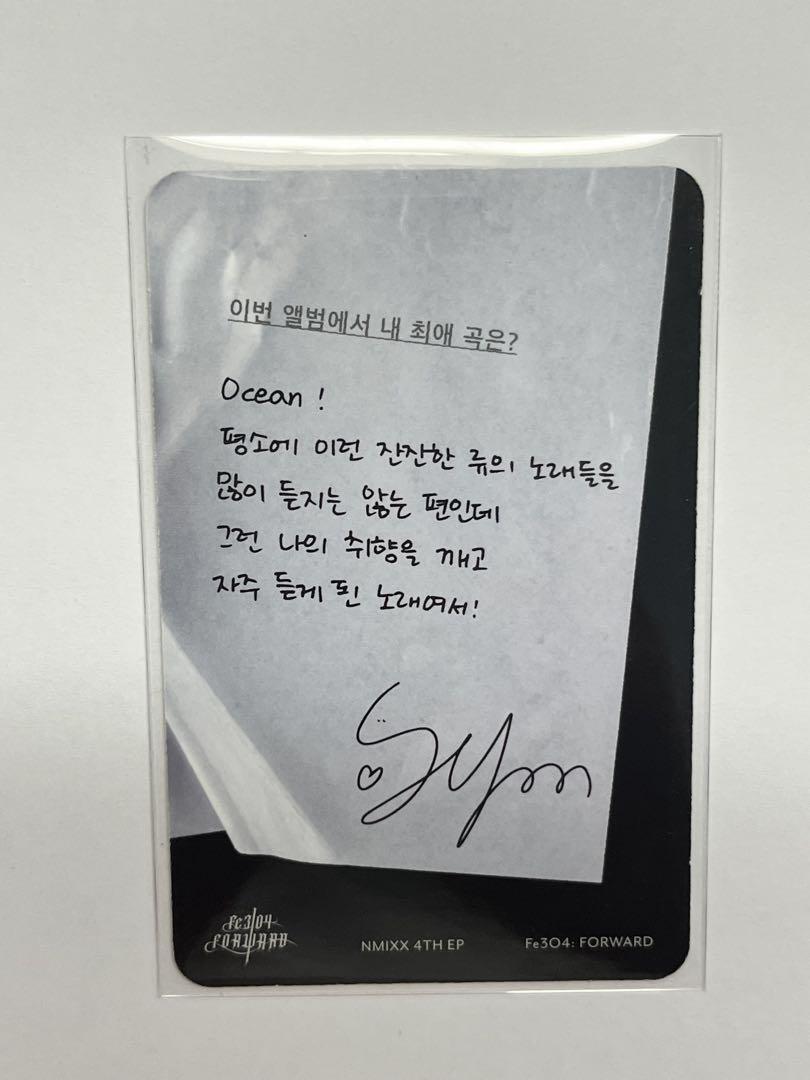 이번 앨범에서 내 최애 곡은?
Ocean !
평소에 이런 잔잔한 류의 노래들을
많이 듣지는 않는 편인데
그런 나의 취향을 깨고
자주 듣게 된 노래여서!
Fe3O4
FORWARD
NMIXX 4TH EP
Fe3O4: FORWARD